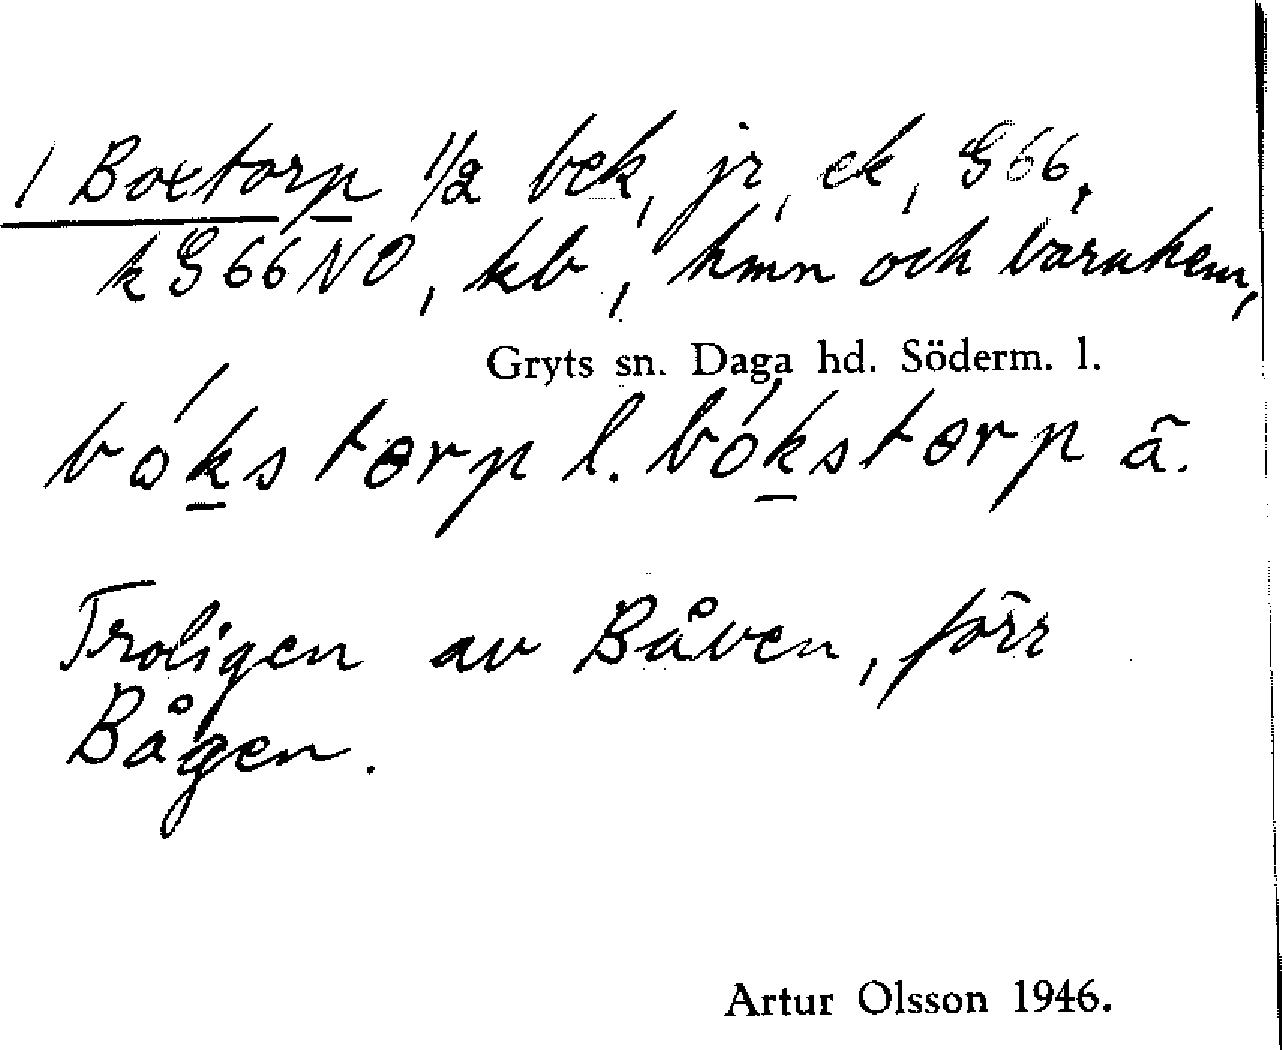 1 Boxtorp 1/2 bek, jr, ek, G 66,
k G 66 NO, kb, hmn och barnhem,
Gryts sn. Daga hd. Söderm. l.
bókstorp l. bókstorp ä.
Troligen av Båven, förr
Bågen.
Artur Olsson 1946.